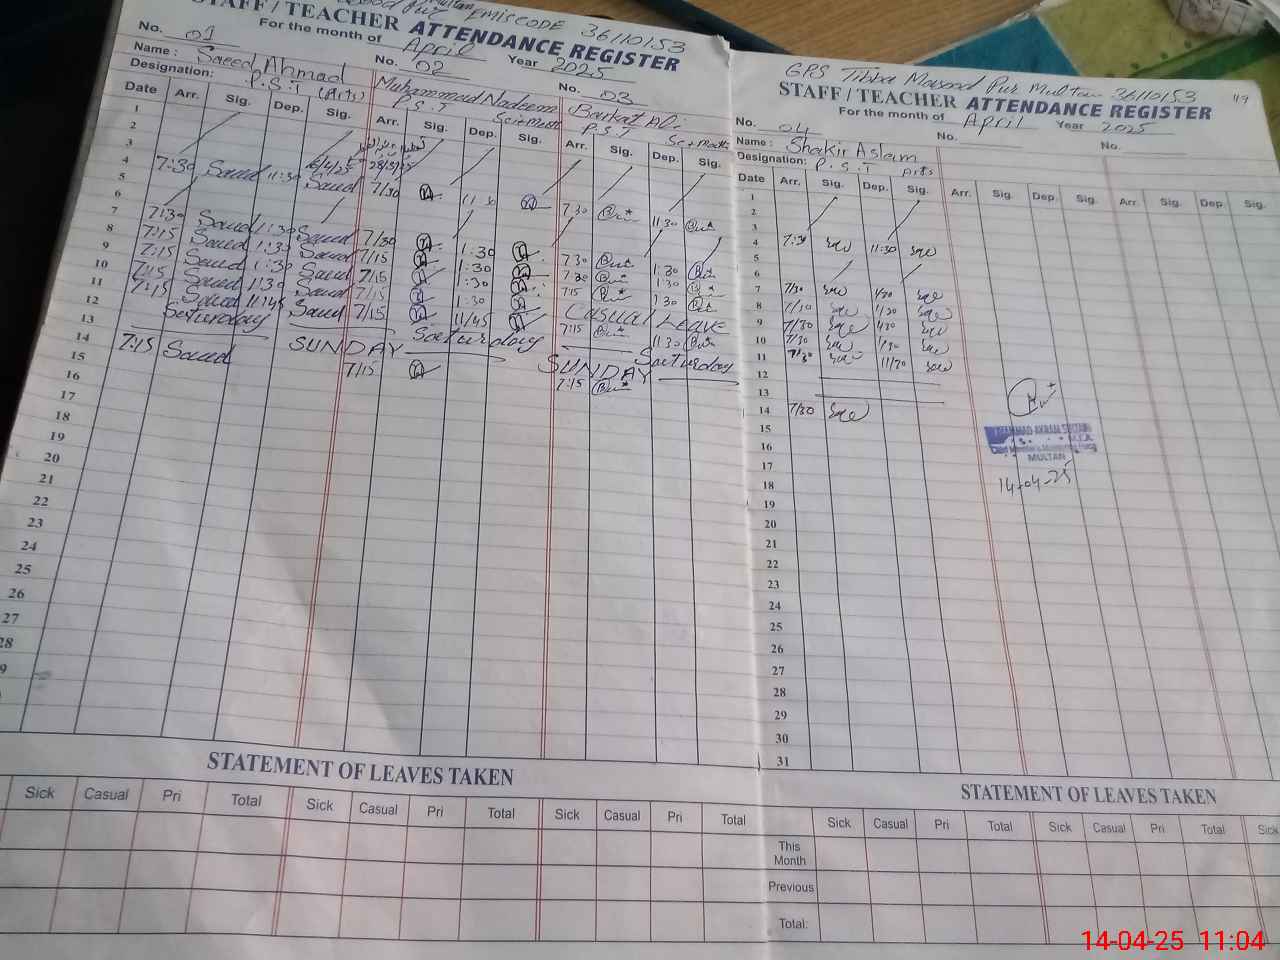 EMISCODE 36110153
STAFF / TEACHER ATTENDANCE REGISTER
For the month of April Year 2025
No. 01
No. 02
No. 03
Name : Saeed Ahmad
Muhammad Nadeem
Barkat Ali
Designation: P.S.T (Arts)
P.S.T Sci+Math
P.S.T Sc+Math
Date Arr. Sig. Dep. Sig. Arr. Sig. Dep. Sig. Arr. Sig. Dep. Sig.
1
2
3
4 7:30 Saeed 11:30 Saeed 7/30 11:30 7:30 11:30
5
6
7 7:30 Saeed 1:30 Saeed 7/30 1:30 7:30 1:30
8 7:15 Saeed 1:30 Saeed 7/15 1:30 7:30 1:30
9 7:15 Saeed 1:30 Saeed 7/15 1:30 7:15 1:30
10 7:15 Saeed 1:30 Saeed 7/15 1:30 Casual Leave
11 7:15 Saeed 11:45 Saeed 7/15 11/45 7:15 11:30
12 Saturday Saturday Saturday
13 SUNDAY SUNDAY
14 7:15 Saeed 7/15 7:15
15
16
17
18
19
20
21
22
23
24
25
26
27
28
STATEMENT OF LEAVES TAKEN
Sick Casual Pri Total Sick Casual Pri Total Sick Casual Pri Total
GPS Tibba Masood Pur Multan 36110153
STAFF / TEACHER ATTENDANCE REGISTER
For the month of April Year 2025
No. 04 No. No.
Name : Shakir Aslam
Designation: P.S.T Arts
Date Arr. Sig. Dep. Sig. Arr. Sig. Dep. Sig. Arr. Sig. Dep. Sig.
1
2
3
4 7:30 11:30
5
6
7 7/30 1/30
8 7/30 1/30
9 7/30 1/30
10 7/30 1/30
11 7/30 11/30
12
13
14 7/30
15
16
17
18
19
20
21
22
23
24
25
26
27
28
29
30
31
MUHAMMAD AKRAM SULTAN
M.E.A.
Chief Minister's Monitoring Force
MULTAN
14-04-25
STATEMENT OF LEAVES TAKEN
Sick Casual Pri Total Sick Casual Pri Total Sick
This Month
Previous
Total:
14-04-25 11:04